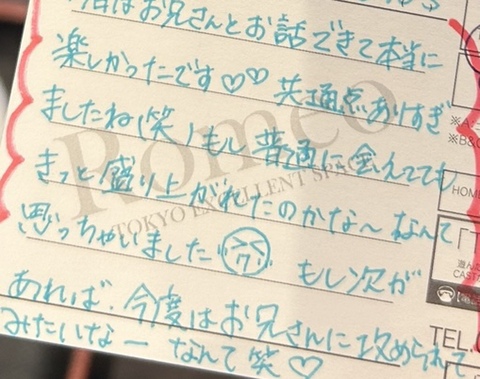 今日はお兄さんとお話できて本当に
楽しかったです♡♡ 共通点ありすぎ
ましたね(笑)もし普通に会えてても
きっと盛り上がれたのかな〜なんて
思っちゃいました もし次が
あれば、今度はお兄さんに攻められて
みたいなー なんて笑♡
Romeo
TOKYO EXCELLENT SPA
HOME
TEL.